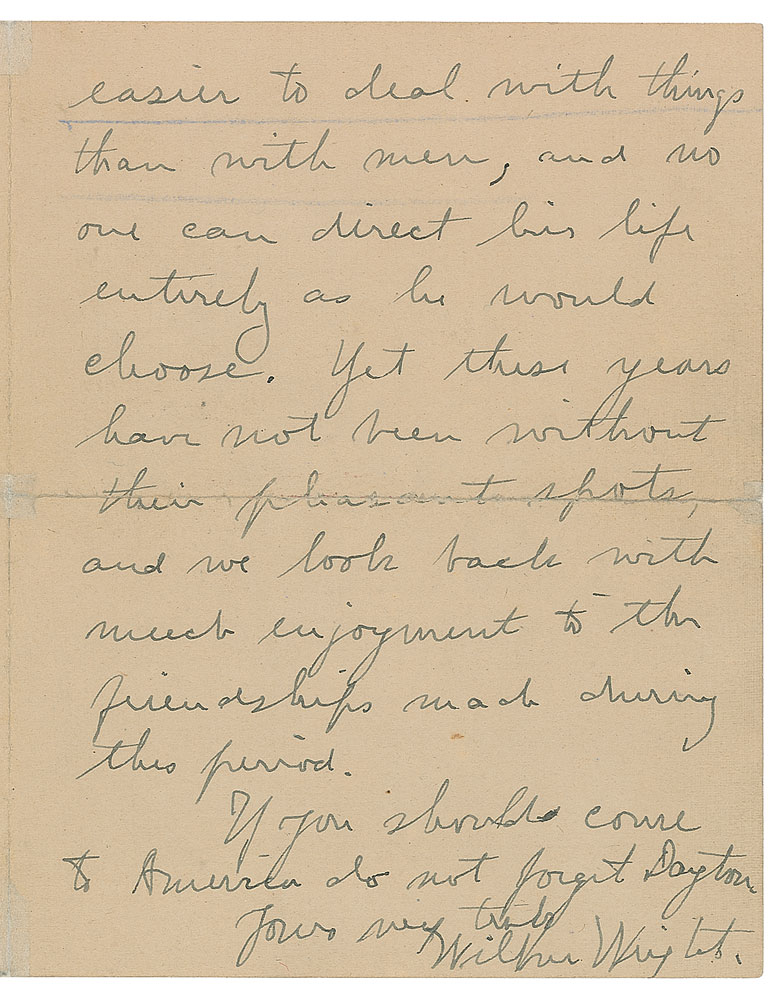 easier to deal with things
than with men, and no
one can direct his life
entirely as he would
choose. Yet these years
have not been without
their pleasant spots,
and we look back with
much enjoyment to the
friendships made during
this period.
If you should come
to America do not forget Dayton.
Yours very truly
Wilbur Wright.